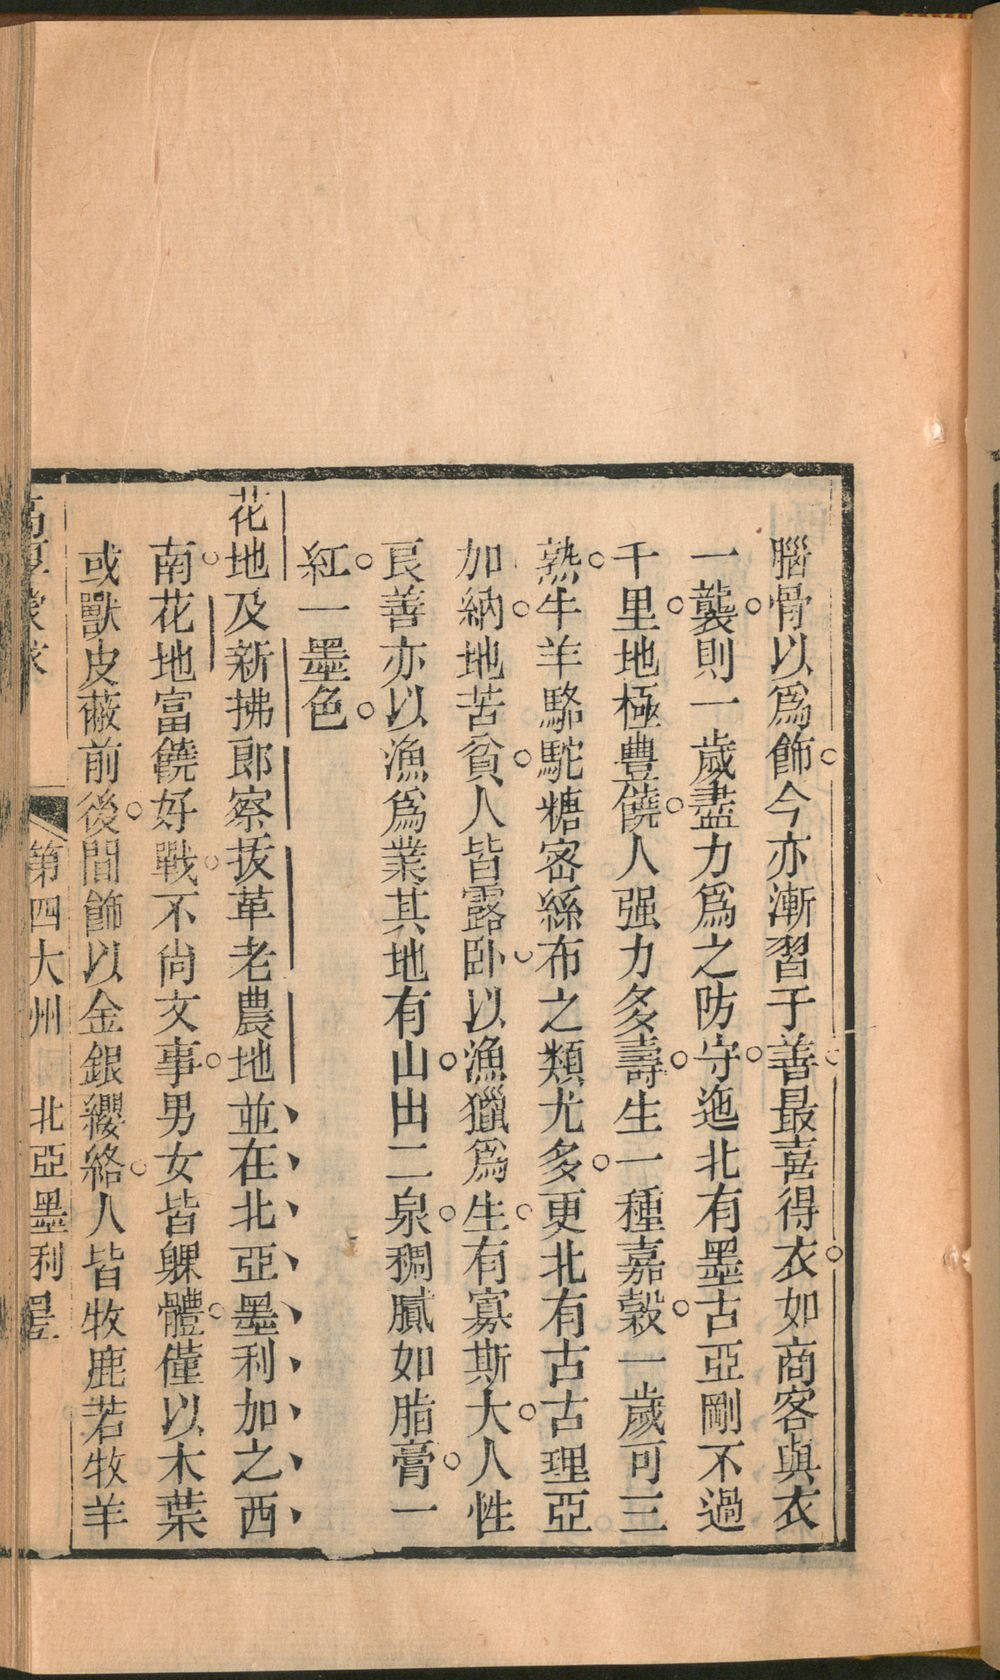 腦骨以爲飾。今亦漸習于善。最喜得衣。如商客與衣
一襲。則一歲盡力爲之防守。迤北有墨古亞剛不過
千里。地極豐饒。人强力多壽。生一種嘉穀。一歲可三
熟。牛羊駱駝糖宻絲布之類尤多。更北有古古理亞
加納。地苦貧。人皆露卧。以漁獵爲生。有寡斯大。人性
良善亦以漁爲業其地有山。出二泉。稠膩如脂膏。一
紅。一墨色。
花地及新拂郎察拔革老農地並在北亞墨利加之西
南。花地富饒好戰。不尚文事。男女皆躶體。僅以木葉
或獸皮蔽前後。間飾以金銀纓絡。人皆牧鹿若牧羊
高厚蒙求
第四大州
北亞墨利